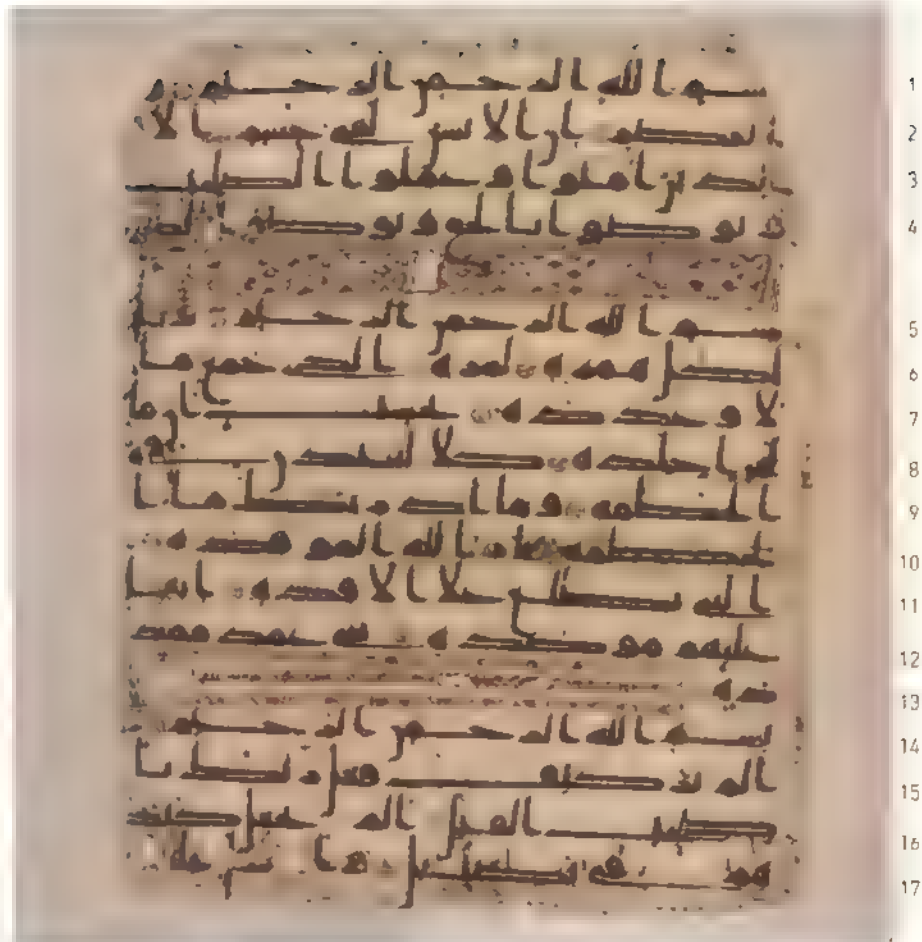 بسم الله الرحمن الرحيم و 1
العصر ان الانسن لفى خسر الا 2
الذين امنوا و عملوا الصلحت 3
و توصوا بالحق و توصوا بالصبر 4
بسم الله الرحمن الرحيم ويل 5
لكل همزة لمزة الذى جمع ما 6
لا و عدده يحسب ان ما 7
له اخلده كلا لينبذن فى 8
الحطمة و ما ادرىك ما ا 9
لحطمة نار الله الموقدة 10
التى تطلع على الافئدة انها 11
عليهم موصدة فى عمد ممد 12
دة 13
بسم الله الرحمن الرحيم 14
الم تر كيف فعل ربك با 15
صحب الفيل الم يجعل كيد 16
هم فى تضليل و ارسل علـ 17